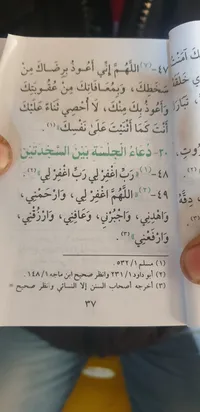 ٤٧-(٧) «اللَّهُمَّ إِنِّي أَعُوذُ بِرِضَاكَ مِنْ
سَخَطِكَ، وَبِمُعَافَاتِكَ مِنْ عُقُوبَتِكَ
وَأَعُوذُ بِكَ مِنْكَ، لَا أُحْصِي ثَنَاءً عَلَيْكَ
أَنْتَ كَمَا أَثْنَيْتَ عَلَى نَفْسِكَ»(١).
٢٠- دُعَاءُ الْجِلْسَةِ بَيْنَ السَّجْدَتَيْنِ
٤٨-(١) «رَبِّ اغْفِرْ لِي رَبِّ اغْفِرْ لِي»(٢).
٤٩-(٢) «اللَّهُمَّ اغْفِرْ لِي، وَارْحَمْنِي،
وَاهْدِنِي، وَاجْبُرْنِي، وَعَافِنِي، وَارْزُقْنِي،
وَارْفَعْنِي»(٣).
(١) مسلم ١/٥٣٢.
(٢) أبو داود ١/٢٣١ وانظر صحيح ابن ماجه ١/١٤٨.
(٣) أخرجه أصحاب السنن إلا النسائي وانظر صحيح =
٣٧